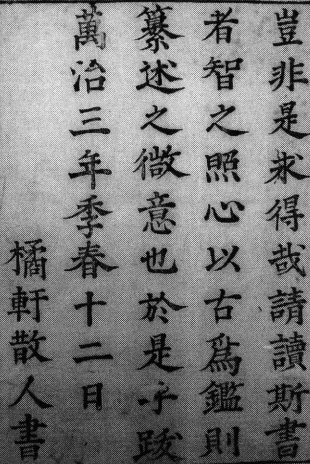 豈非是求得哉請讀斯書
者智之照心以古爲鑑則
纂述之微意也於是乎跋
萬治三年季春十二日
橘軒散人書